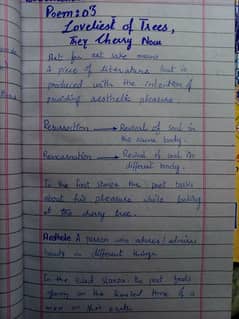 Poem:03
Loveliest of Trees,
They Cherry Now
Art for art sake means
a piece of literature that is
produced with the intention of
providing aesthetic pleasure.
Resurrection → Revival of soul in
the same body.
Reincarnation → Revival of soul in
different body.
In the first stanza the poet talks
about his pleasure while looking
at the cherry tree.
Aesthete A person who adores/admires
beauty in different things
In the second stanza the poet
on the limited time of a
man on this earth.